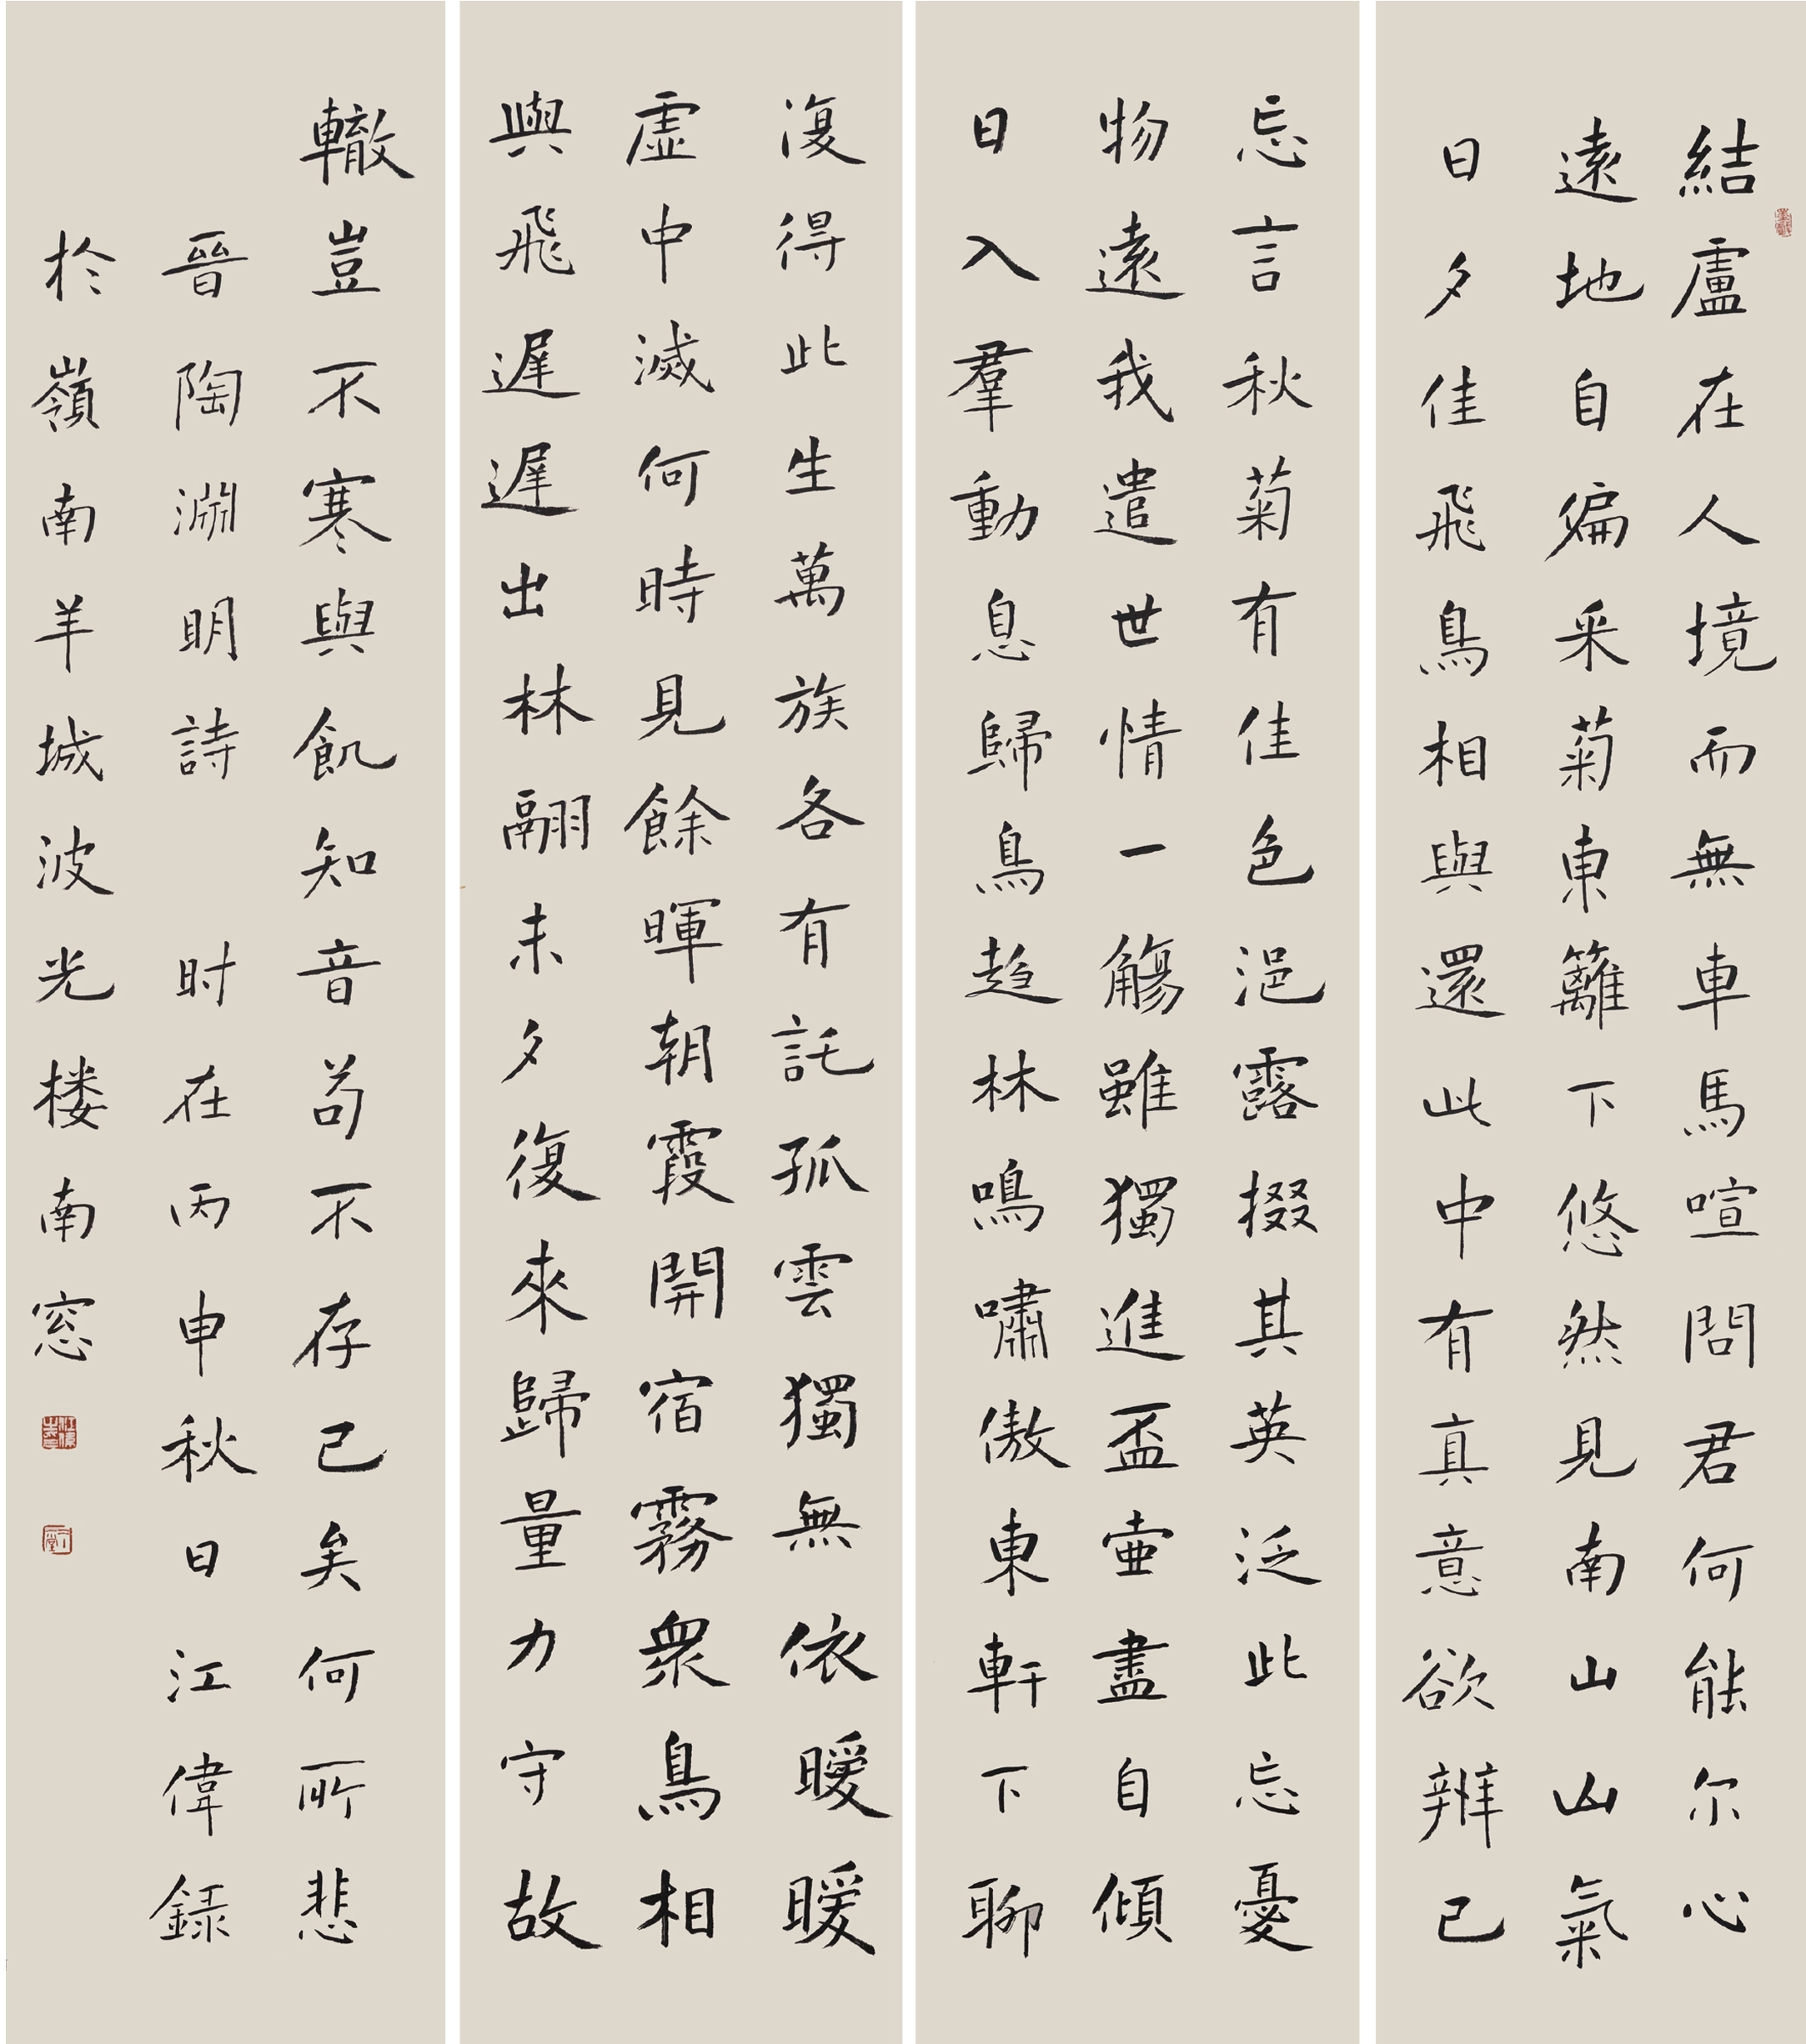 結廬在人境而無車馬喧問君何能尔心
遠地自偏采菊東籬下悠然見南山山氣
日夕佳飛鳥相與還此中有真意欲辨已
忘言秋菊有佳色浥露掇其英泛此忘憂
物遠我遺世情一觴雖獨進盃壷盡自傾
日入羣動息歸鳥趋林鳴嘯傲東軒下聊
復得此生萬族各有託孤雲獨無依曖曖
虛中滅何時見餘暉朝霞開宿霧衆鳥相
與飛遲遲出林翮未夕復來歸量力守故
轍豈不寒與飢知音苟不存已矣何所悲
晉陶淵明詩 时在丙申秋日江偉録
於嶺南羊城波光楼南窓